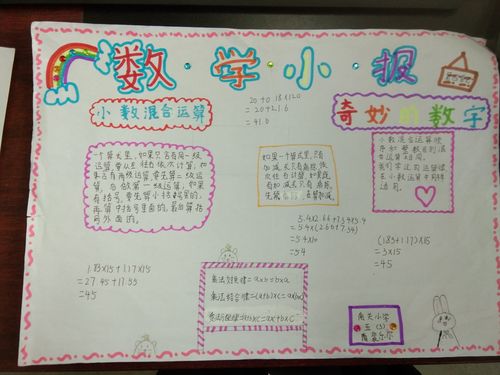 数学小报
小数混合运算
20+0.18×120
=20+21.6
=41.6
奇妙的数字
一个算式里,如果只含有同一级运
算,要从左往右依次计算,如
果含有两级运算,要先算二级运
算,后做第一级运算,如果
有括号,要先算小括号里的,
再算中括号里面的,最后算括
号外面的。
如果一个算式里,只有
加减或只有乘除,依
次往右计算,如果既
有加减又有乘除,
先乘除,后算加减。
小数混合运算顺
序和整数的混
合运算相同。
我们学过的运算律
在小数运算中同样
适用。
5.4×2.6+7.4×5.4
=5.4×(2.6+7.4)
=5.4×10
=54
(1.83+1.17)×15
=3×15
=45
1.83×15+1.17×15
=27.45+17.55
=45
乘法交换律=a×b=b×a
乘法结合律=(a×b)×c=a×(b×c)
乘法分配律=(a+b)×c=a×c+b×c
南关小学
五(3)